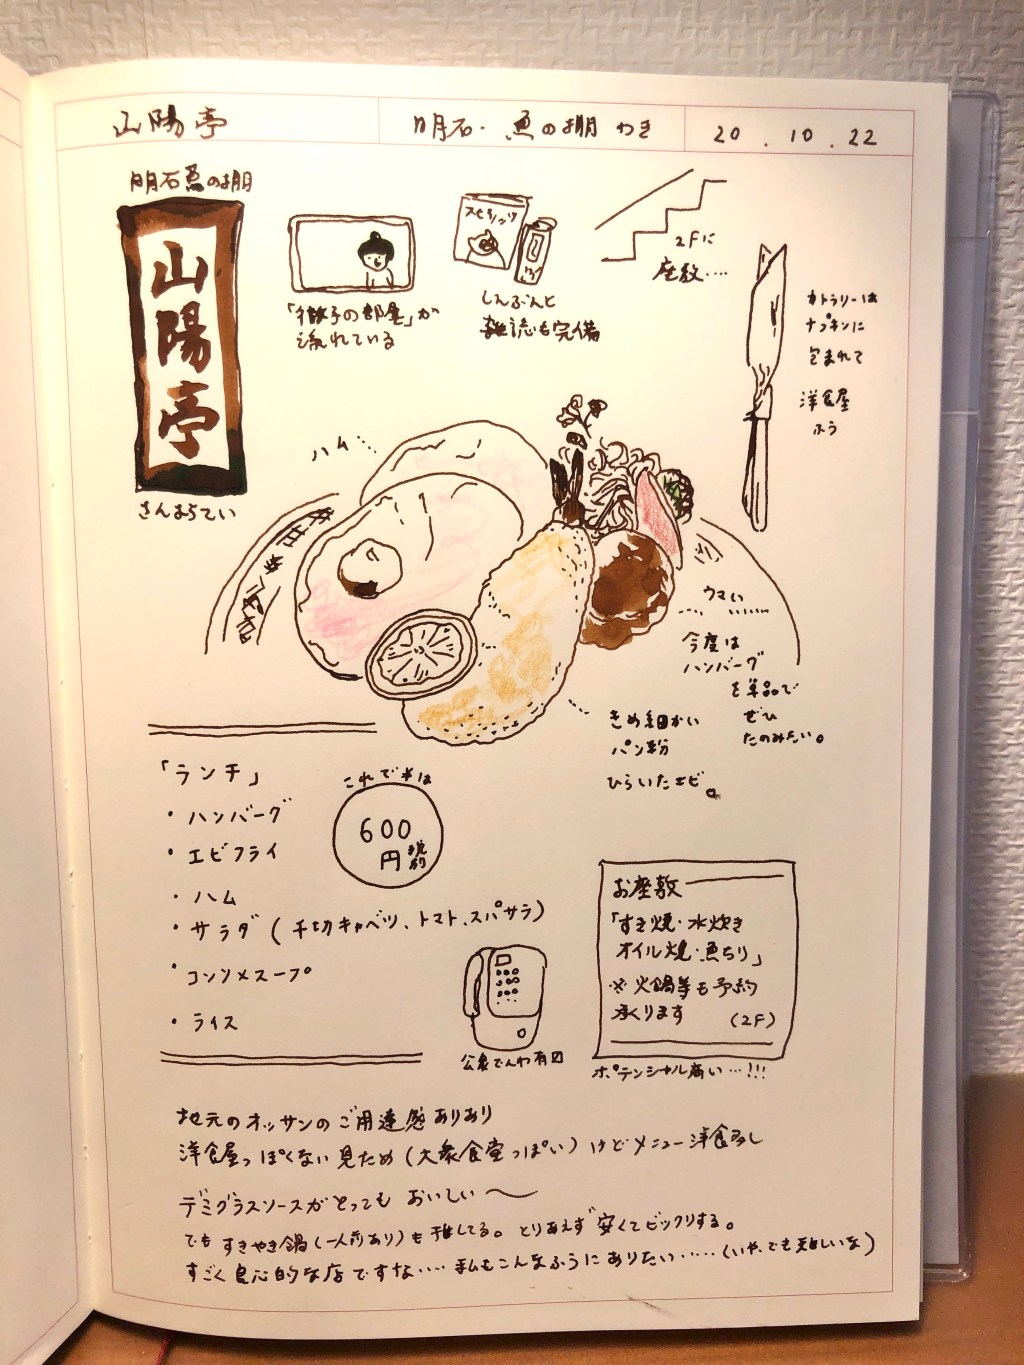 山陽亭
明石・魚の棚 わき
20.10.22
明石魚の棚
山陽亭
さんようてい
「徹子の部屋」が
流れている
スピリッツ
しんぶんと
雑誌も完備
2Fに
座敷‥‥
カトラリーは
ナプキンに
包まれて
洋食屋
ふう
ハム…
ウマい
今度は
ハンバーグ
を単品で
ぜひ
たのみたい。
きめ細かい
パン粉
ひらいたエビ。
「ランチ」
・ハンバーグ
・エビフライ
・ハム
・サラダ(千切キャベツ、トマト、スパサラ)
・コンソメスープ
・ライス
これで
600
円
税別
お座敷
「すき焼・水炊き
オイル焼・魚ちり」
※火鍋等も予約
承ります
(2F)
ポテンシャル高い…!!!
公衆でんわ有
地元のオッサンのご用達感ありあり
洋食屋っぽくない見ため(大衆食堂っぽい)けどメニュー洋食多し
デミグラスソースがとっても おいしい〜
でも すきやき鍋(一人前あり)も推してる。とりあえず安くてビックリする。
すごく良心的な店ですな‥‥私もこんなふうにありたい‥‥‥(いや、でも難しいな)